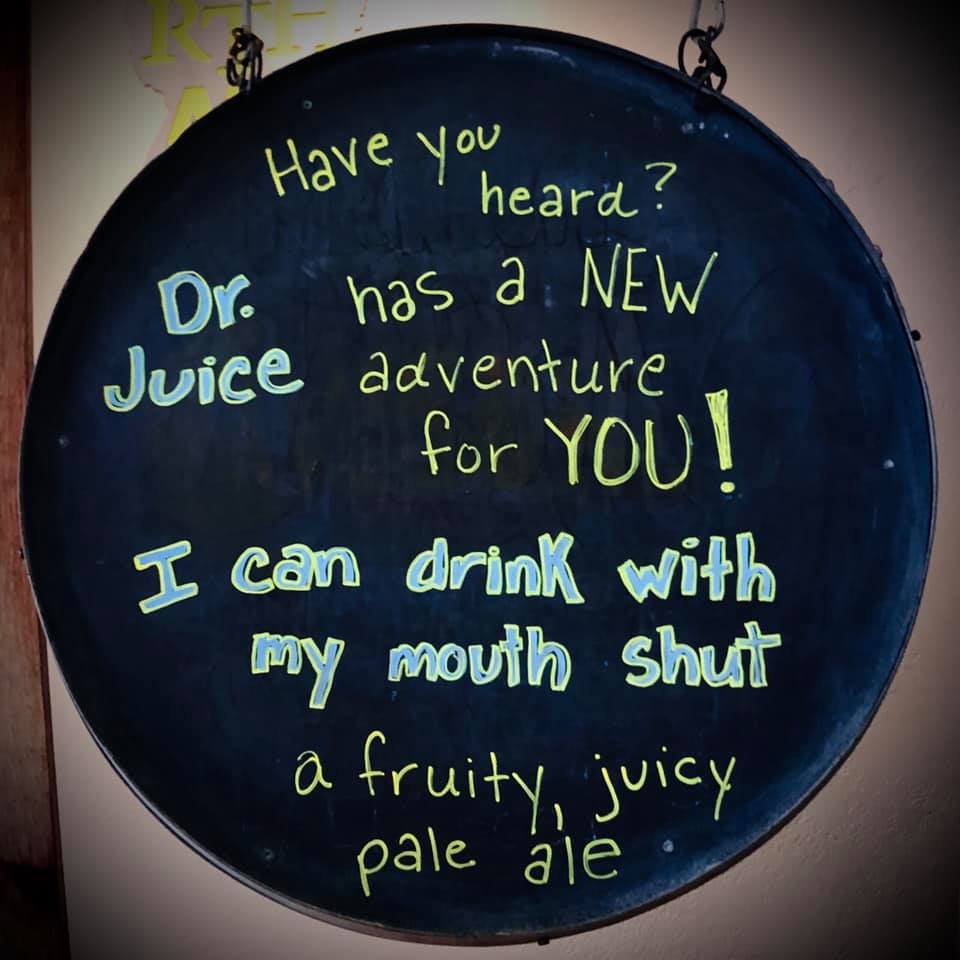 Have you
heard?
Dr. has a NEW
Juice adventure
for YOU!
I can drink with
my mouth shut
a fruity, juicy
pale ale